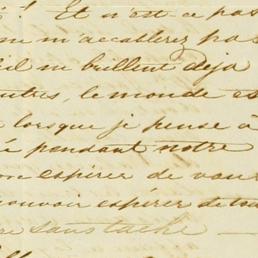 ! Et n'est-ce pas
m'accablerez pas
brillent deja
autres, le monde es
lorsque je pense à
pendant notre
espérer de vous
pouvoir espérer de tou
sans tache —